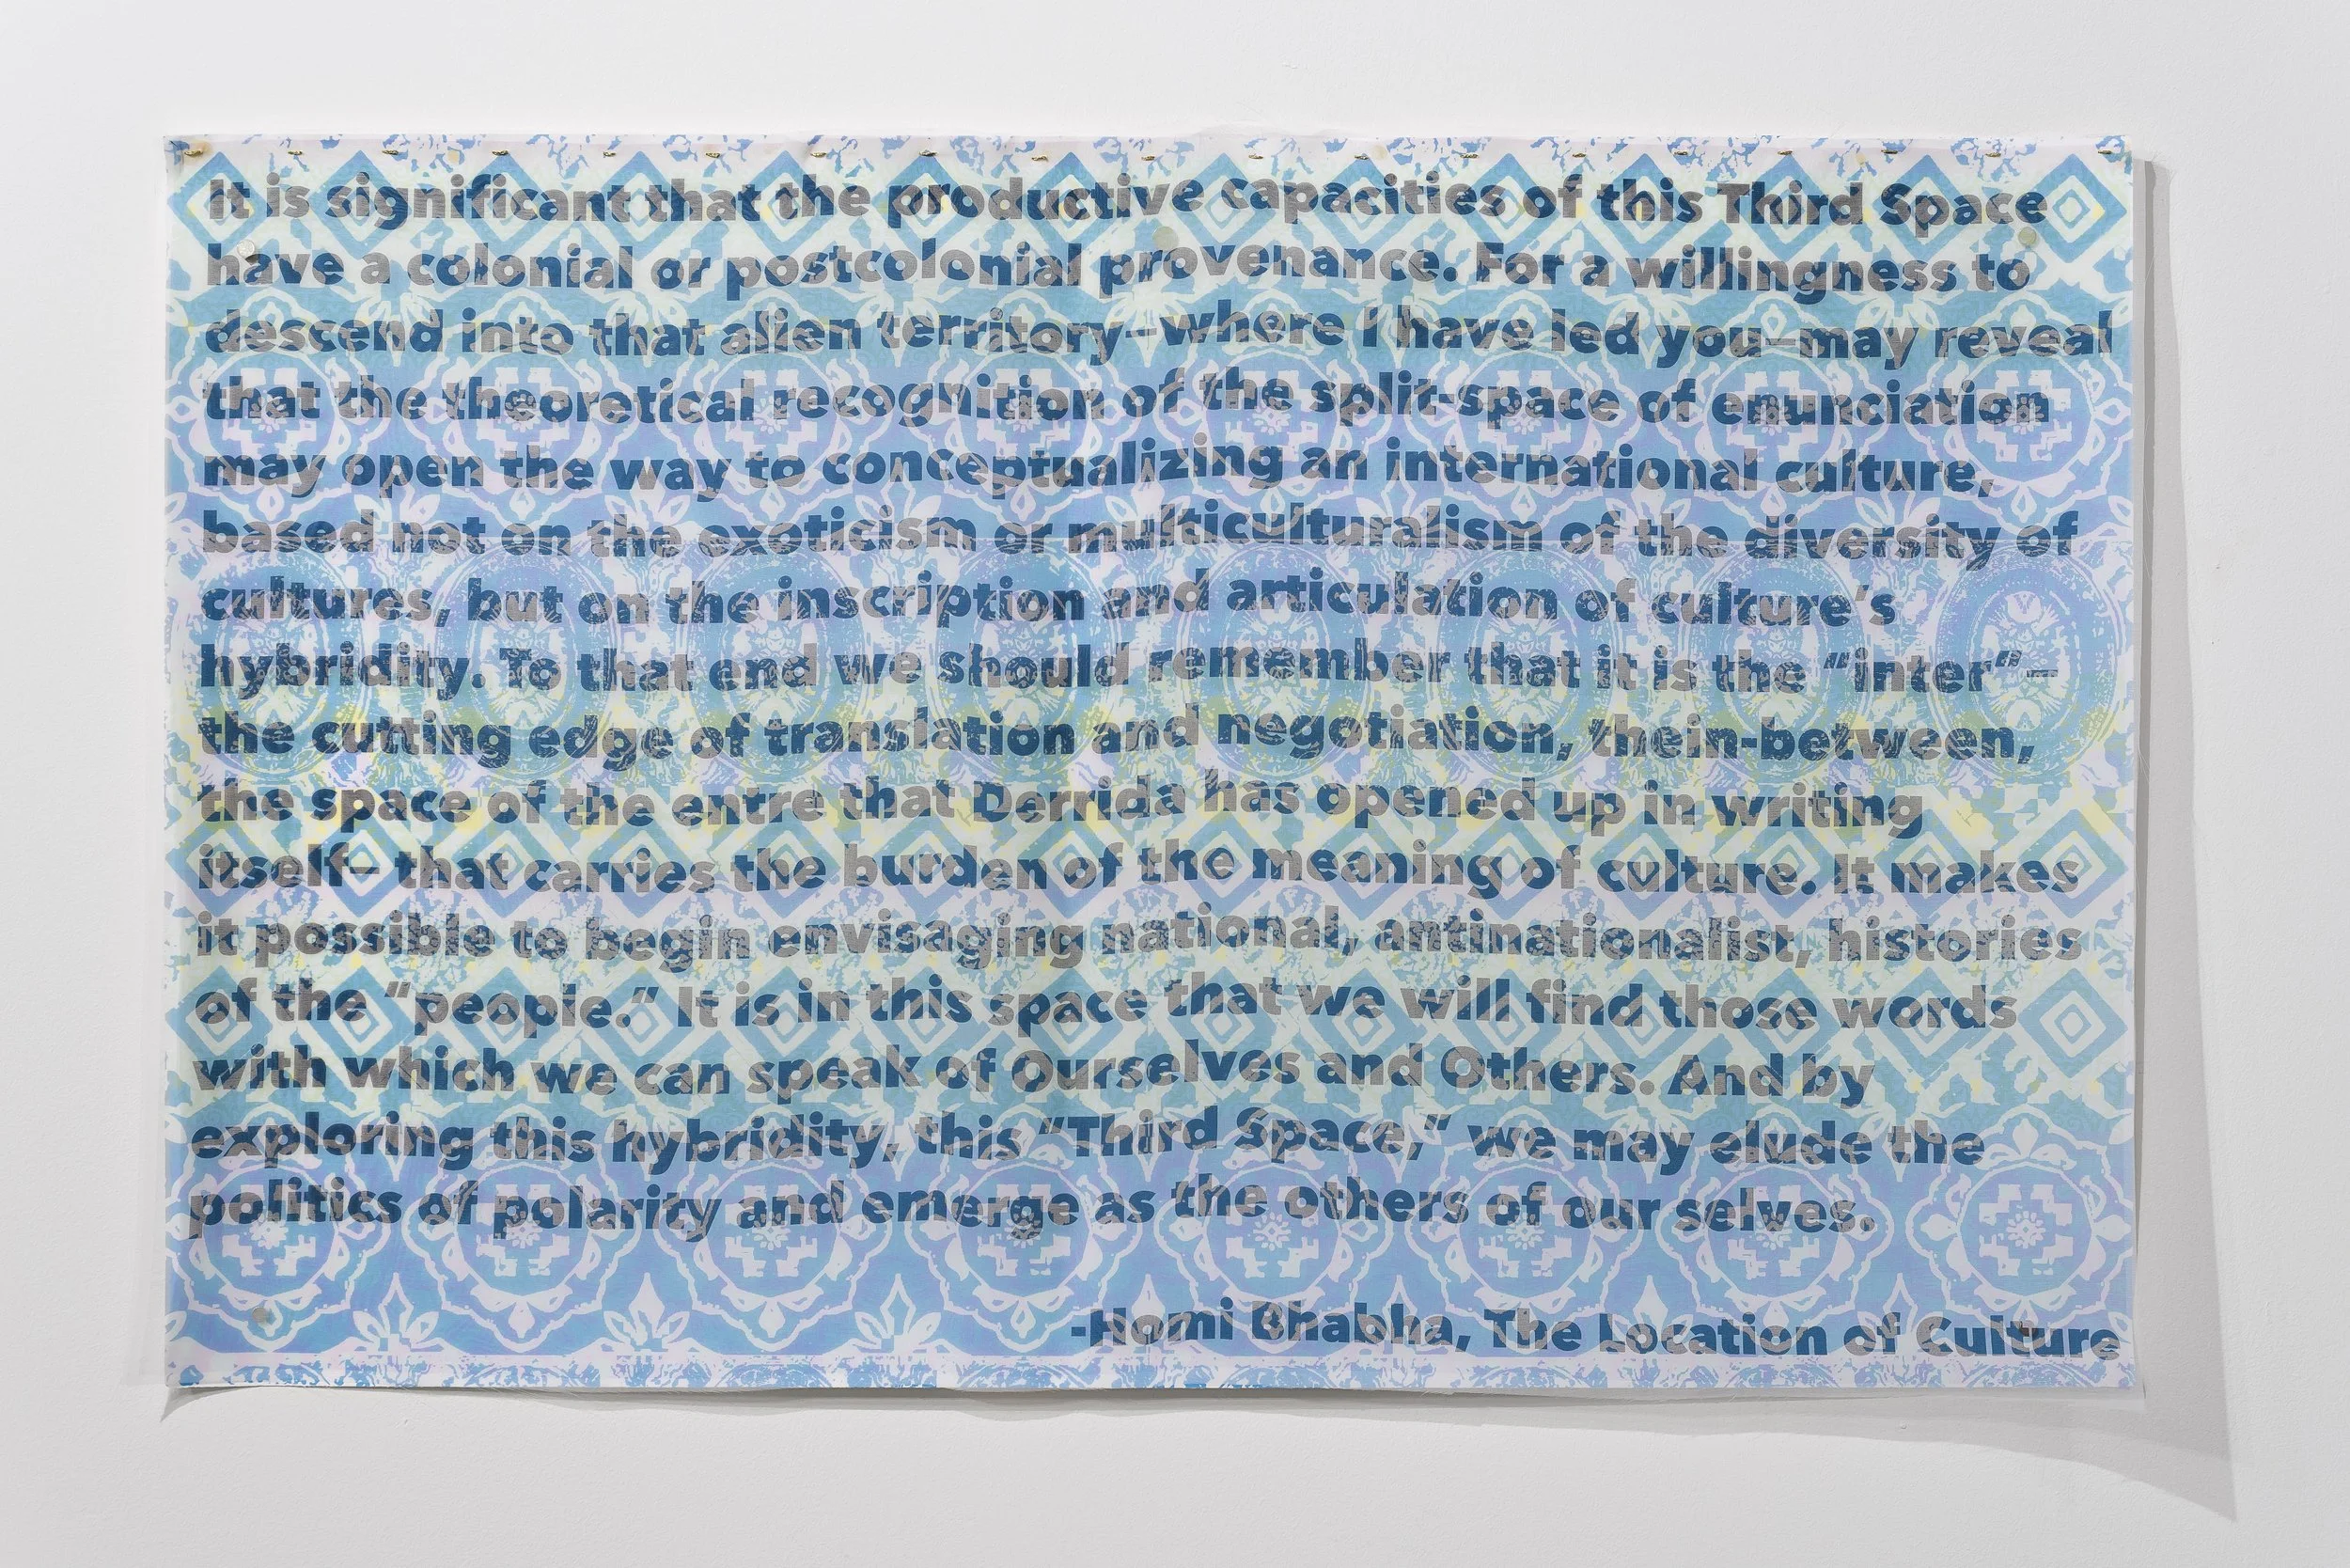 It is significant that the productive capacities of this Third Space
have a colonial or postcolonial provenance. For a willingness to
descend into that alien territory–where I have led you–may reveal
that the theoretical recognition of the split-space of enunciation
may open the way to conceptualizing an international culture,
based not on the exoticism or multiculturalism of the diversity of
cultures, but on the inscription and articulation of culture’s
hybridity. To that end we should remember that it is the “inter“–
the cutting edge of translation and negotiation, thein-between,
the space of the entre that Derrida has opened up in writing
itself– that carries the burden of the meaning of culture. It makes
it possible to begin envisaging national, antinationalist, histories
of the “people.” It is in this space that we will find those words
with which we can speak of Ourselves and Others. And by
exploring this hybridity, this “Third Space,” we may elude the
politics of polarity and emerge as the others of our selves.
-Homi Bhabha, The Location of Culture